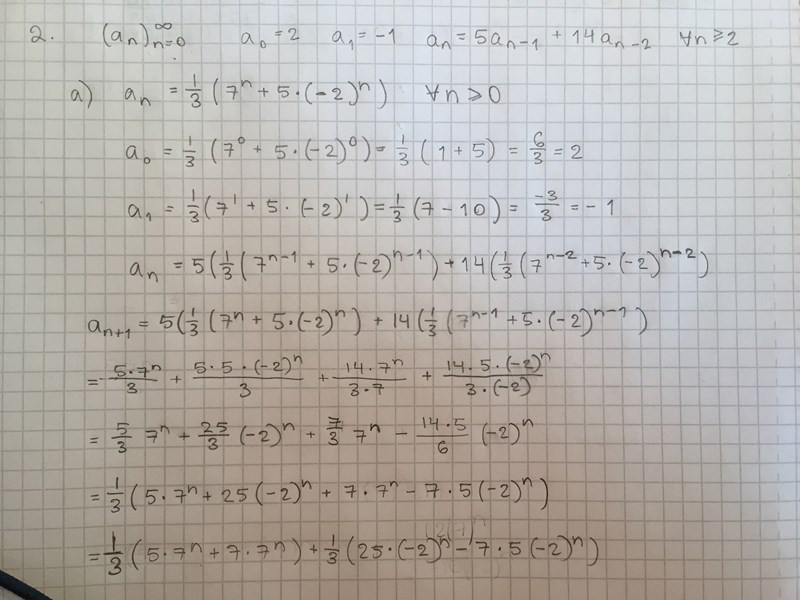 2. (aₙ)ₙ₌₀^∞ a₀ = 2 a₁ = -1 aₙ = 5aₙ₋₁ + 14aₙ₋₂ ∀n ≥ 2
a) aₙ = 1/3 (7ⁿ + 5·(-2)ⁿ) ∀n ≥ 0
a₀ = 1/3 (7⁰ + 5·(-2)⁰) = 1/3 (1 + 5) = 6/3 = 2
a₁ = 1/3 (7¹ + 5·(-2)¹) = 1/3 (7 - 10) = -3/3 = -1
aₙ = 5(1/3 (7ⁿ⁻¹ + 5·(-2)ⁿ⁻¹) + 14(1/3 (7ⁿ⁻² + 5·(-2)ⁿ⁻²)
aₙ₊₁ = 5(1/3 (7ⁿ + 5·(-2)ⁿ) + 14(1/3 (7ⁿ⁻¹ + 5·(-2)ⁿ⁻¹)
= 5·7ⁿ/3 + 5·5·(-2)ⁿ/3 + 14·7ⁿ/3·7 + 14·5·(-2)ⁿ/3·(-2)
= 5/3 7ⁿ + 25/3 (-2)ⁿ + 7/3 7ⁿ - 14·5/6 (-2)ⁿ
= 1/3 (5·7ⁿ + 25(-2)ⁿ + 7·7ⁿ - 7·5(-2)ⁿ)
= 1/3 (5·7ⁿ + 7·7ⁿ) + 1/3 (25·(-2)ⁿ - 7·5(-2)ⁿ)